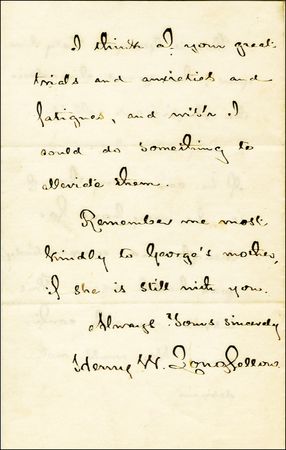 I think of your great
trials and anxieties and
fatigues, and wish I
could do something to
alleviate them.
Remember me most
kindly to George's mother,
if she is still with you.
Always Yours sincerely
Henry W. Longfellow